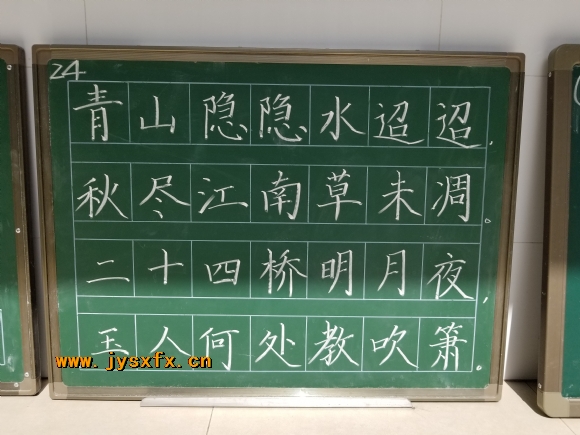 24
青山隐隐水迢迢,
秋尽江南草未凋。
二十四桥明月夜,
玉人何处教吹箫.
www.jysxfx.cn